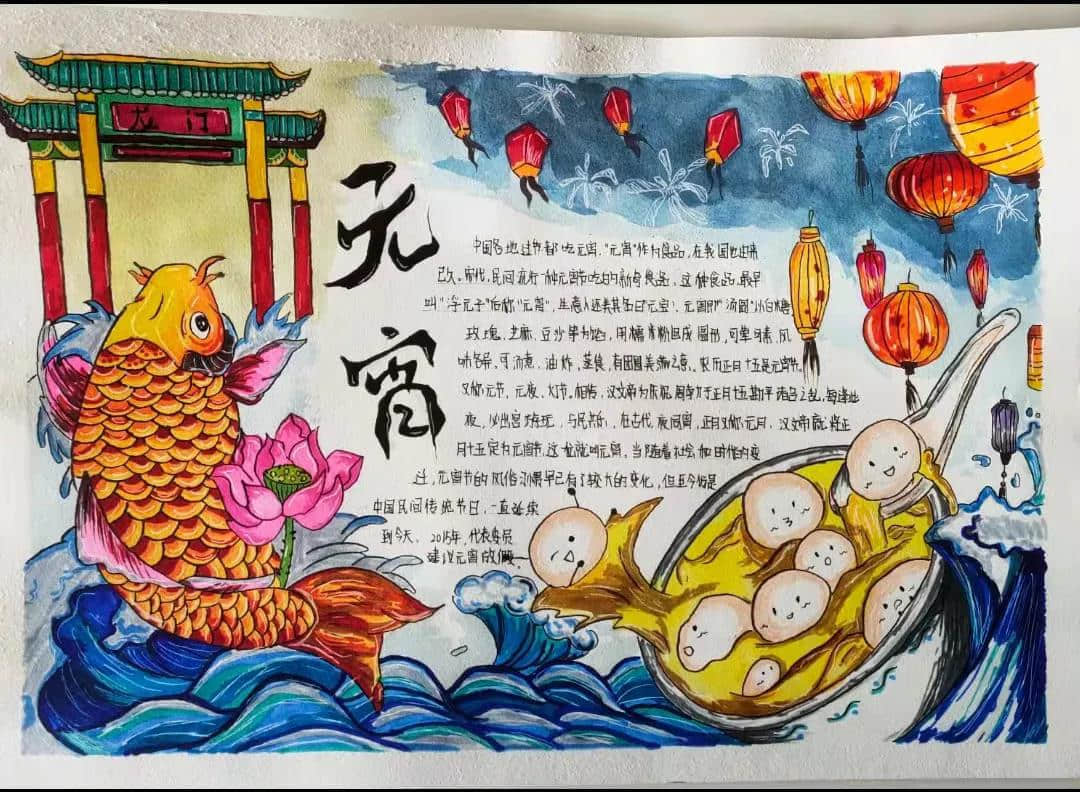 龙门
元宵
中国各地过节都吃元宵，"元宵"作为食品，在我国也由来
已久。宋代，民间流行一种元宵节吃的新奇食品。这种食品，最早
叫"浮元子"后称"元宵"，生意人还美其名曰元宝。元宵即"汤圆"以白糖、
玫瑰、芝麻、豆沙等为馅，用糯米粉包成圆形，可荤可素，风
味各异。可汤煮、油炸、蒸食，有团圆美满之意。农历正月十五是元宵节，
又称元节、元夜、灯节。相传，汉文帝为庆祝周勃于正月十五勘平诸吕之乱，每逢此
夜，必出宫游玩，与民共乐，在古代，夜同宵，正月又称元月，汉文帝就将正
月十五定为元宵节，这夜就叫元宵。当随着社会和时代的变
迁，元宵节的风俗习惯早已有了较大的变化，但至今仍是
中国民间传统节日，一直延续
到今天。2015年，代表委员
建议元宵放假。